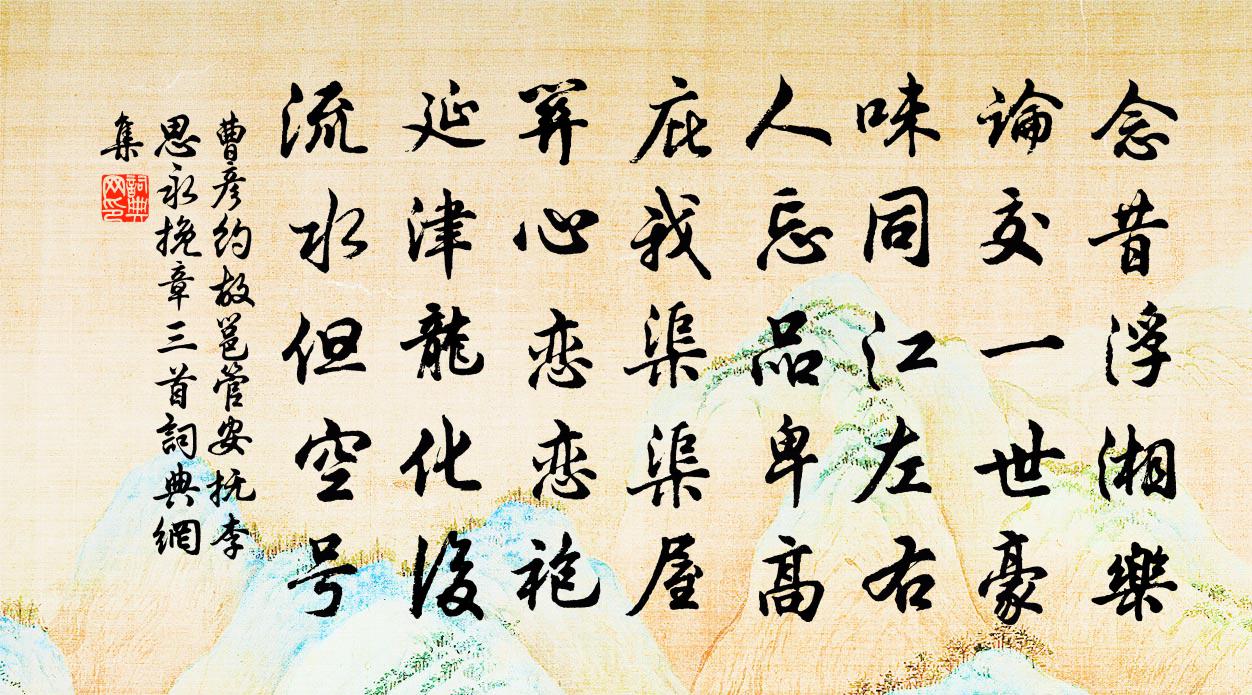 念昔浮湘樂
論交一世豪
味同江左右
人忘品卑高
庇我渠渠屋
羿心恋恋袍
延津龍化後
流水但空号
曹彦約故邕管安抚李
思永挽章三首詞典網
集
詞典网印